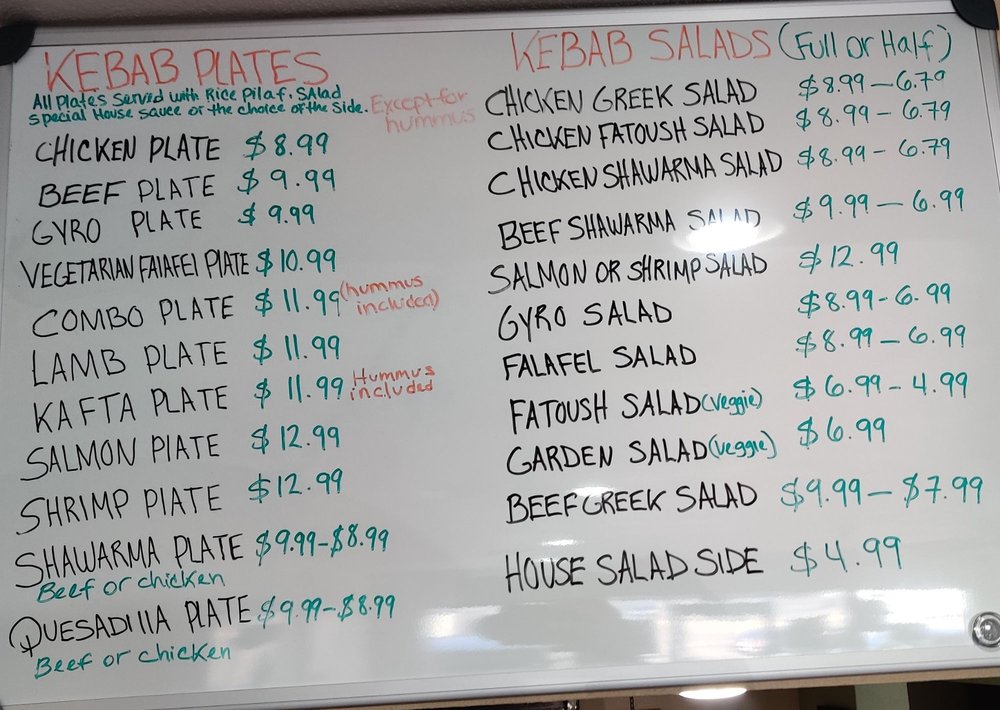 KEBAB PLATES
All Plates Served with Rice Pilaf. SAlad
Special House Sauce or the choice of the Side. Except for hummus
CHICKEN PLATE $8.99
BEEF PLATE $9.99
GYRO PLATE $9.99
VEGETARIAN FAlAFEl PlATE $10.99
COMBO PLATE $11.99 (hummus included)
LAMB PLATE $11.99
KAFTA PLATE $11.99 Hummus included
SALMON PlATE $12.99
SHRIMP PlATE $12.99
SHAWARMA PLATE $9.99-$8.99
Beef or chicken
QUESADIllA PLATE $9.99-$8.99
Beef or chicken
KEBAB SALADS (Full or Half)
CHICKEN GREEK SALAD $8.99-6.79
CHICKEN FATOUSH SALAD $8.99-6.79
CHICKEN SHAWARMA SALAD $8.99-6.79
BEEF SHAWARMA SALAD $9.99-6.99
SALMON OR SHRIMP SALAD $12.99
GYRO SALAD $8.99-6.99
FALAFEL SALAD $8.99-6.99
FATOUSH SALAD (veggie) $6.99-4.99
GARDEN SALAD (veggie) $6.99
BEEF GREEK SALAD $9.99-$7.99
HOUSE SALAD SIDE $4.99